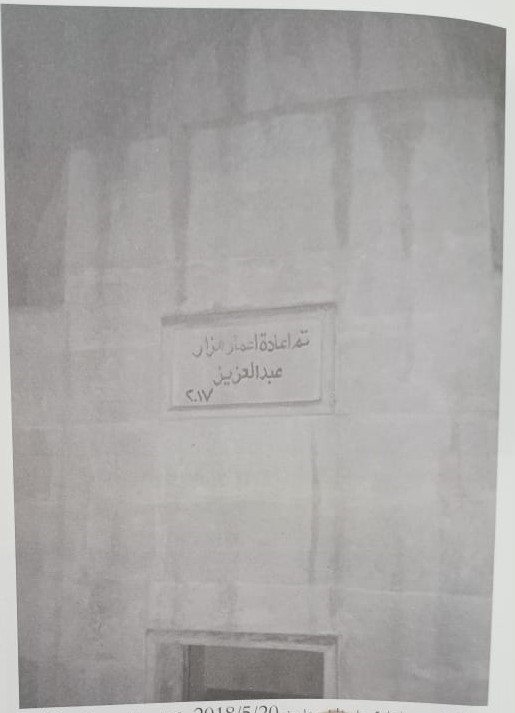 تم اعادة اعمار مزار
عبدالعزيز
٢٠١٧
2018/5/20